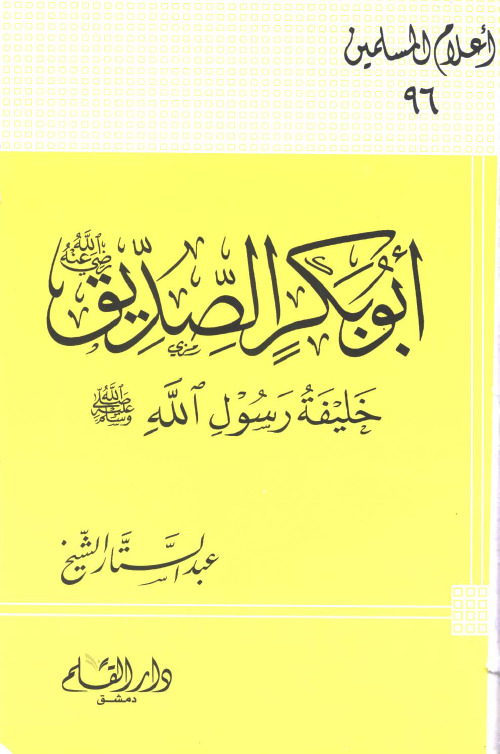 أعلام المسلمين
٩٦
أبو بكرٍ الصِّدِّيق رضي الله عنه
خَليْفَةُ رَسُوْلِ ٱللَّهِ صلى الله عليه وسلم
عبد الستَّار الشّيخ
دار القلم
دمشق